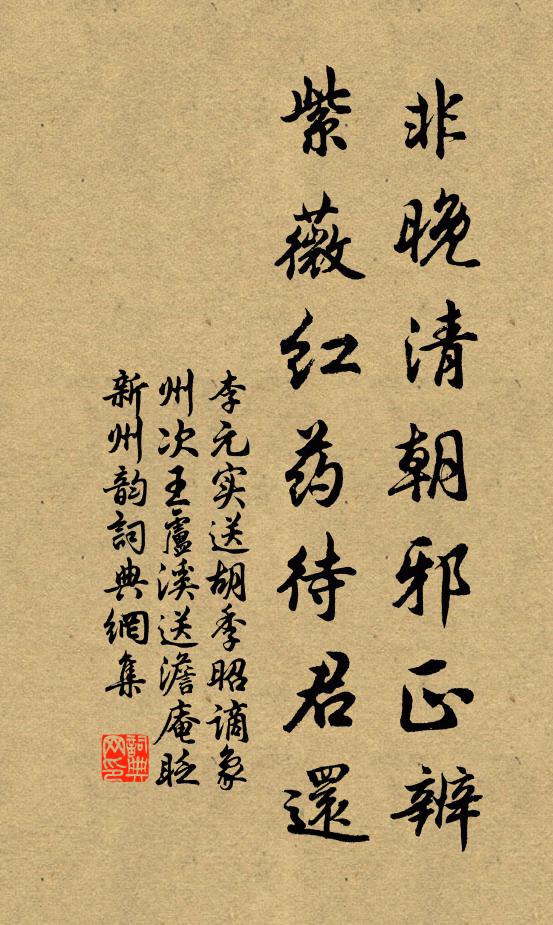 非晚清朝邪正辨
紫薇红药待君還
李元实送胡季昭谪象
州次王盧溪送澹庵贬
新州韵詞典網集
詞典
网印